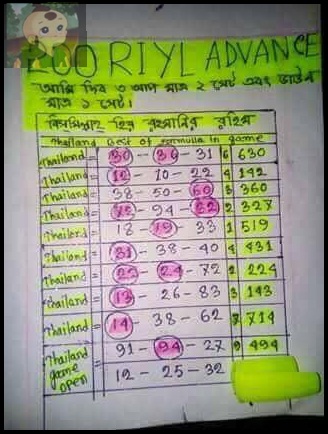 200 RIYL ADVANCE
আমি দিব ৩ আপ মাত্র ২ সেট এবং ডাউন
মাত্র ১ সেট।
বিসমিল্লাহ হির রহমানির রাহিম
Thailand Best of formula in game
Thailand = 30 - 36 - 31 6 630
Thailand = 12 - 10 - 22 4 142
Thailand = 38 - 50 - 60 3 360
Thailand = 75 - 94 - 22 2 327
Thailand = 18 - 19 - 33 1 519
Thailand = 31 - 38 - 40 4 431
Thailand = 22 - 24 - 72 2 224
Thailand = 13 - 26 - 83 3 143
Thailand = 14 - 38 - 62 7 714
Thailand 91 - 94 - 27 9 494
game open = 12 - 25 - 32